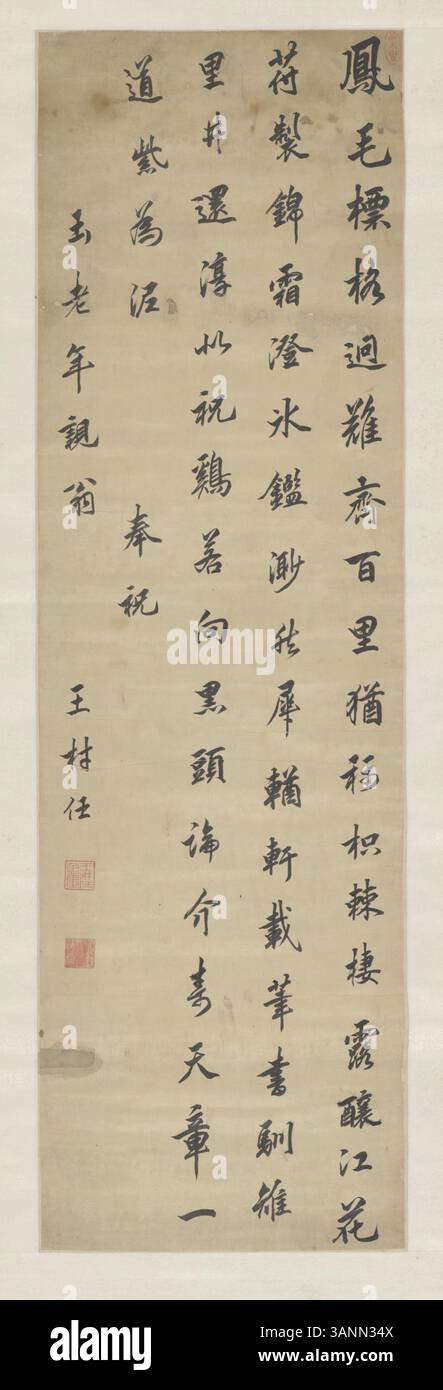 鳳毛標格迥難齊百里猶稱枳棘棲露釀江花
荷製錦霜澄氷鑑渺然犀輶軒載筆書馴雉
里井還淳以祝鷄若向黒頭論介壽天章一
道紫為泥 奉祝
玉老年親翁 王材任
alamy
alamy
Image ID: 3ANN34X
www.alamy.com